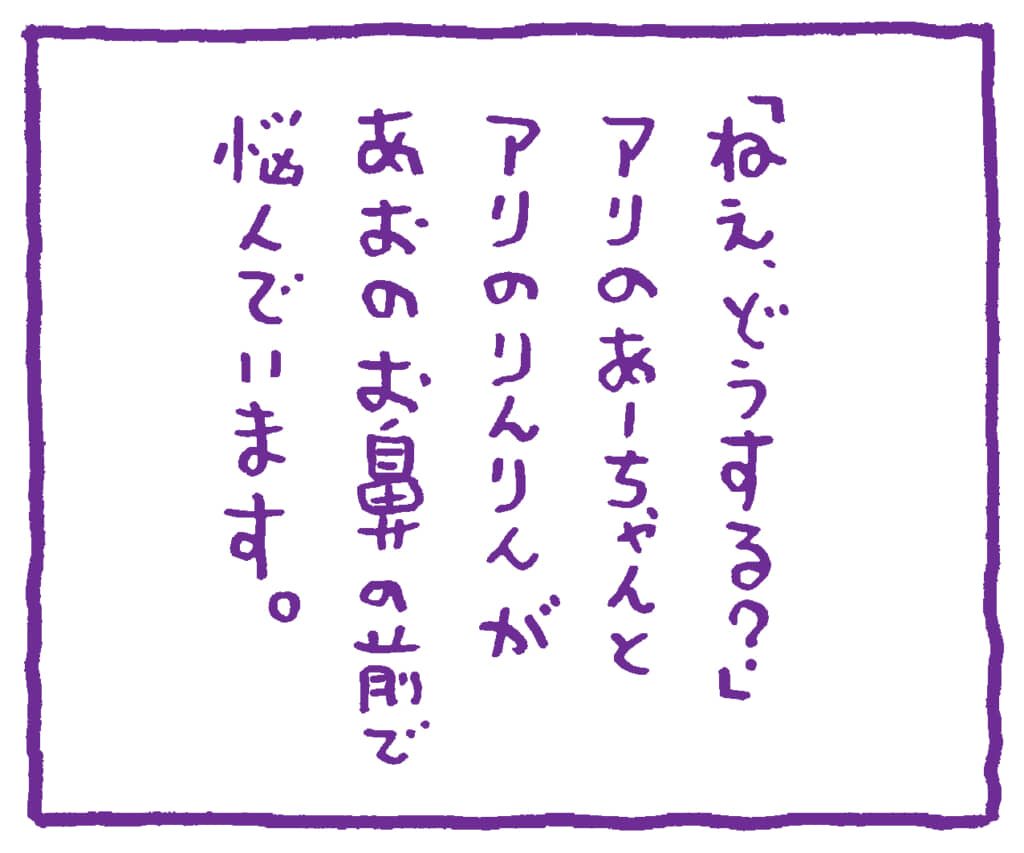 「ねえ、どうする?」
アリのあーちゃんと
アリのりんりんが
あおのお鼻の前で
悩んでいます。